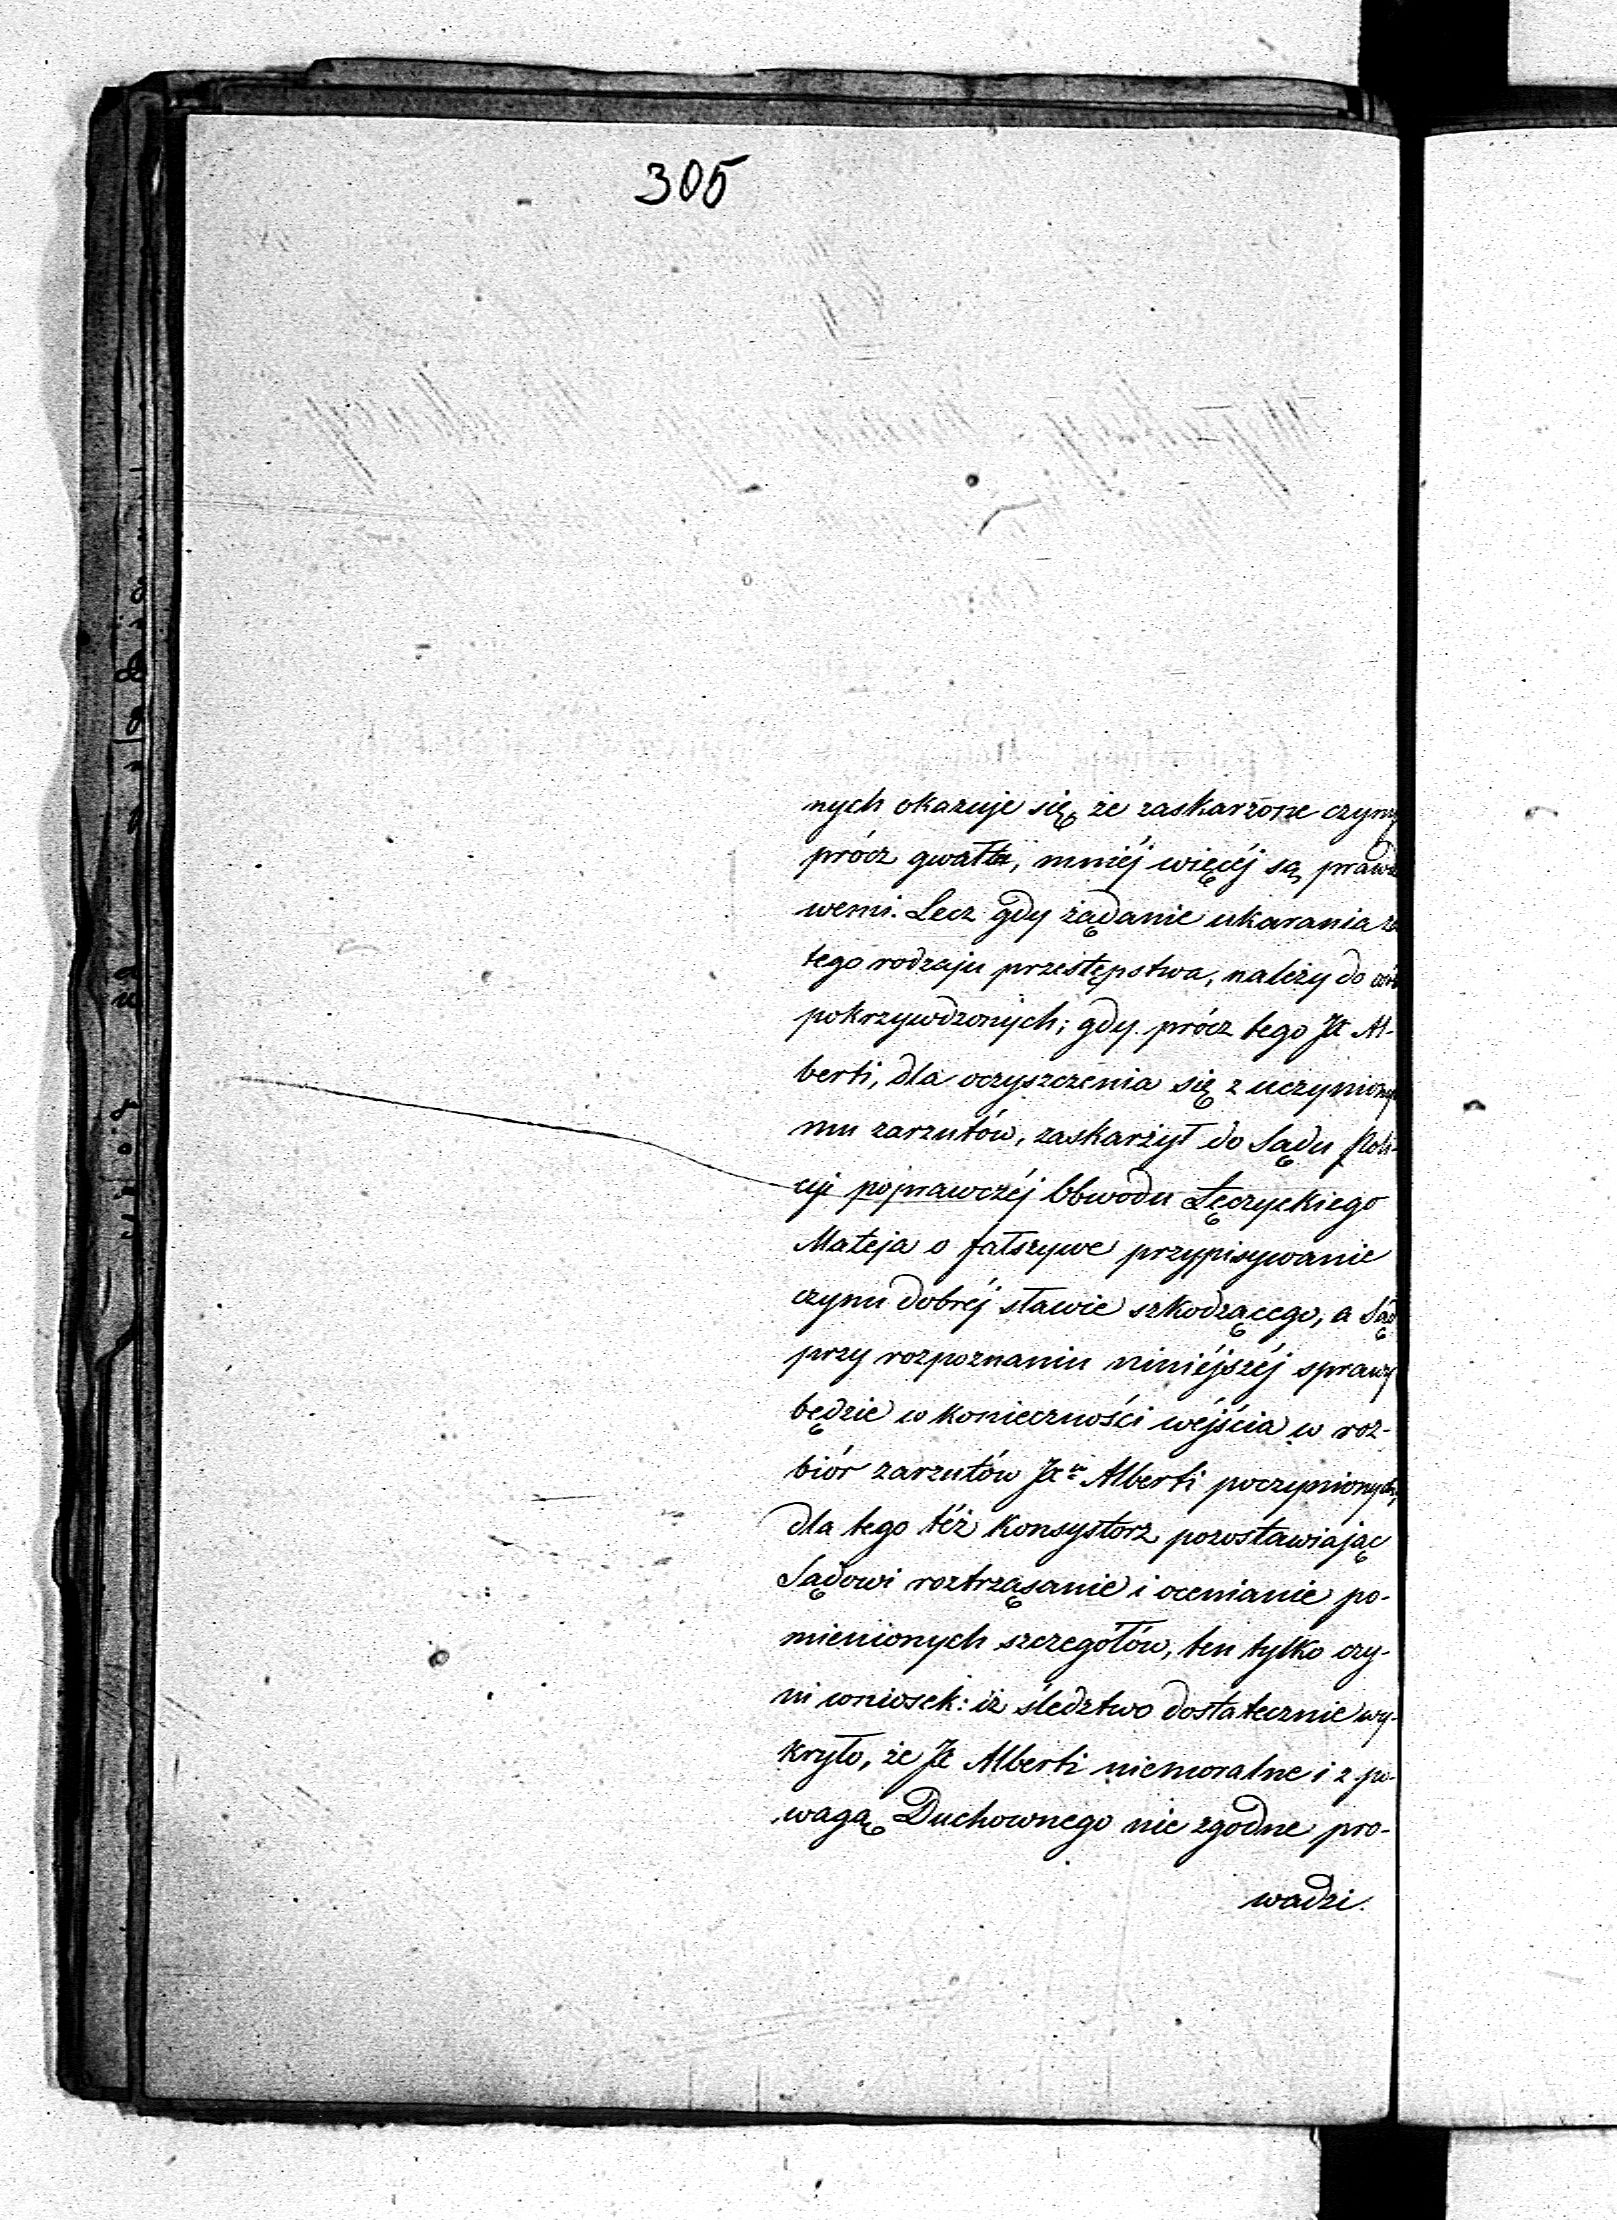 305
nych okazuje się, że zaskarżone czyny
prócz gwałtu, mniéj więcéj są, prawdz
wemi. Lecz gdy żądanie ukarania za
tego rodzaju przestępstwa, należy do osób
pokrzywdzonych; gdy prócz tego JX Al-
berti, dla oczyszczenia się z uczynionych
mu zarzutów, zaskarżył do Sądu Poli-
cyi poprawczéj Obwodu Łęczyckiego
Mateja o fałszywe przypisywanie
czynu dobréj sławie szkodzącego, a Sąd
przy rozpoznaniu niniéjszéj sprawy
będzie w konieczności wéjścia w roz-
biór zarzutów Alberti poczynionych,
dla tego téż Konsystorz pozostawiając
Sądowi roztrząsanie i ocenianie po-
mienionych szczegółów, ten tylko czy-
ni wniosek: iż śledztwo dostatecznie wy-
kryło, że JX Alberti niemoralne i z po-
wagą Duchownego nie zgodne pro-
wadzi.